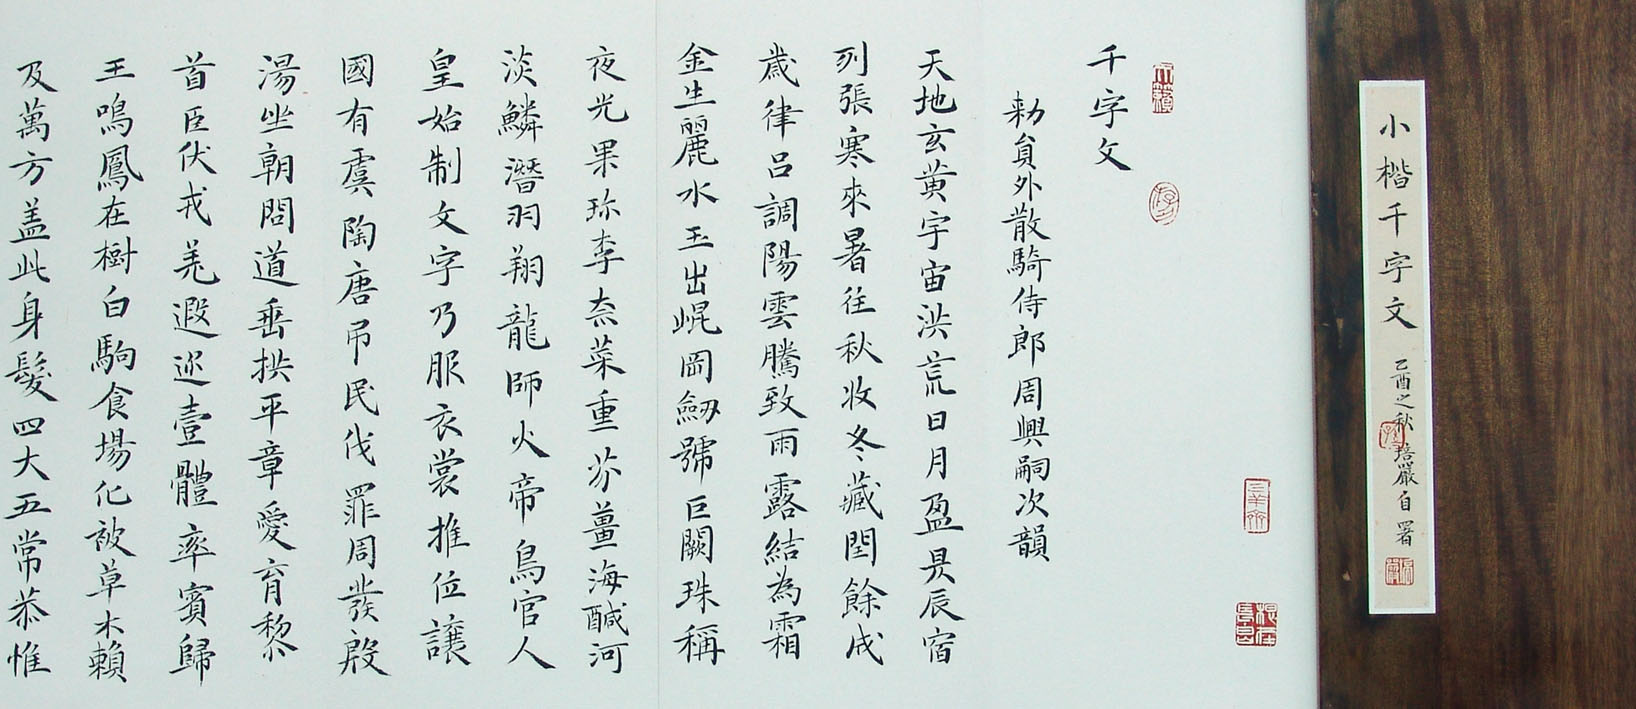 小楷千字文 乙酉之秋 培嚴自署
千字文
勑貟外散騎侍郎周興嗣次韻
天地玄黄宇宙洪荒日月盈昃辰宿
列張寒來暑往秋收冬藏閏餘成
歲律吕調陽雲騰致雨露結為霜
金生麗水玉出崐岡劔號巨闕珠稱
夜光果珎李柰菜重芥薑海醎河
淡鱗潛羽翔龍師火帝鳥官人
皇始制文字乃服衣裳推位讓
國有虞陶唐吊民伐罪周發殷
湯坐朝問道垂拱平章愛育黎
首臣伏戎羌遐迩壹體率賓歸
王鳴鳳在樹白駒食場化被草木賴
及萬方盖此身髮四大五常恭惟